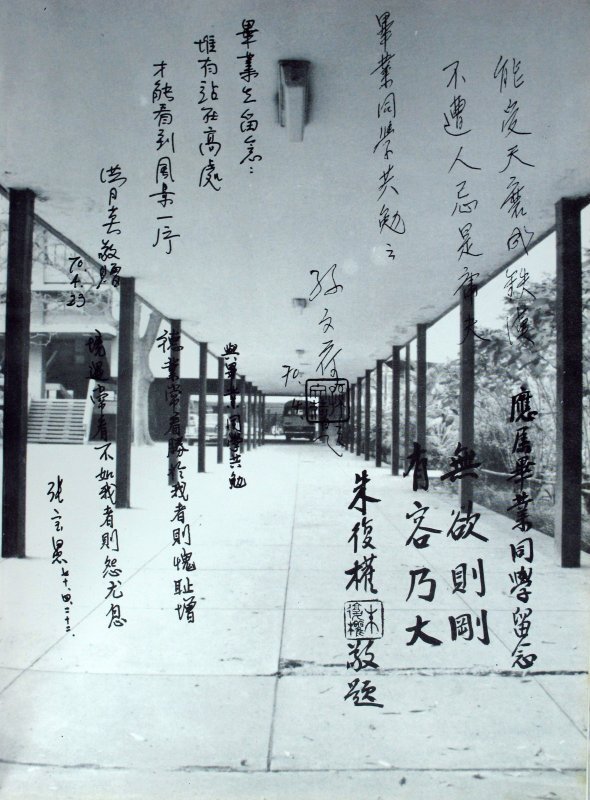 能受天磨成鉄漢
不遭人忌是庸夫
畢業同學共勉之
孫文
70.4
應屆畢業同學留念
無欲則剛
有容乃大
朱復權
朱復權
敬題
畢業生留念：
惟有站在高處
才能看到風景一序
洪月敬贈
70.4.23
與畢業同學共勉
德業常看勝於我者則愧耻增
境遇常看不如我者則怨尤息
張
七十四二十二